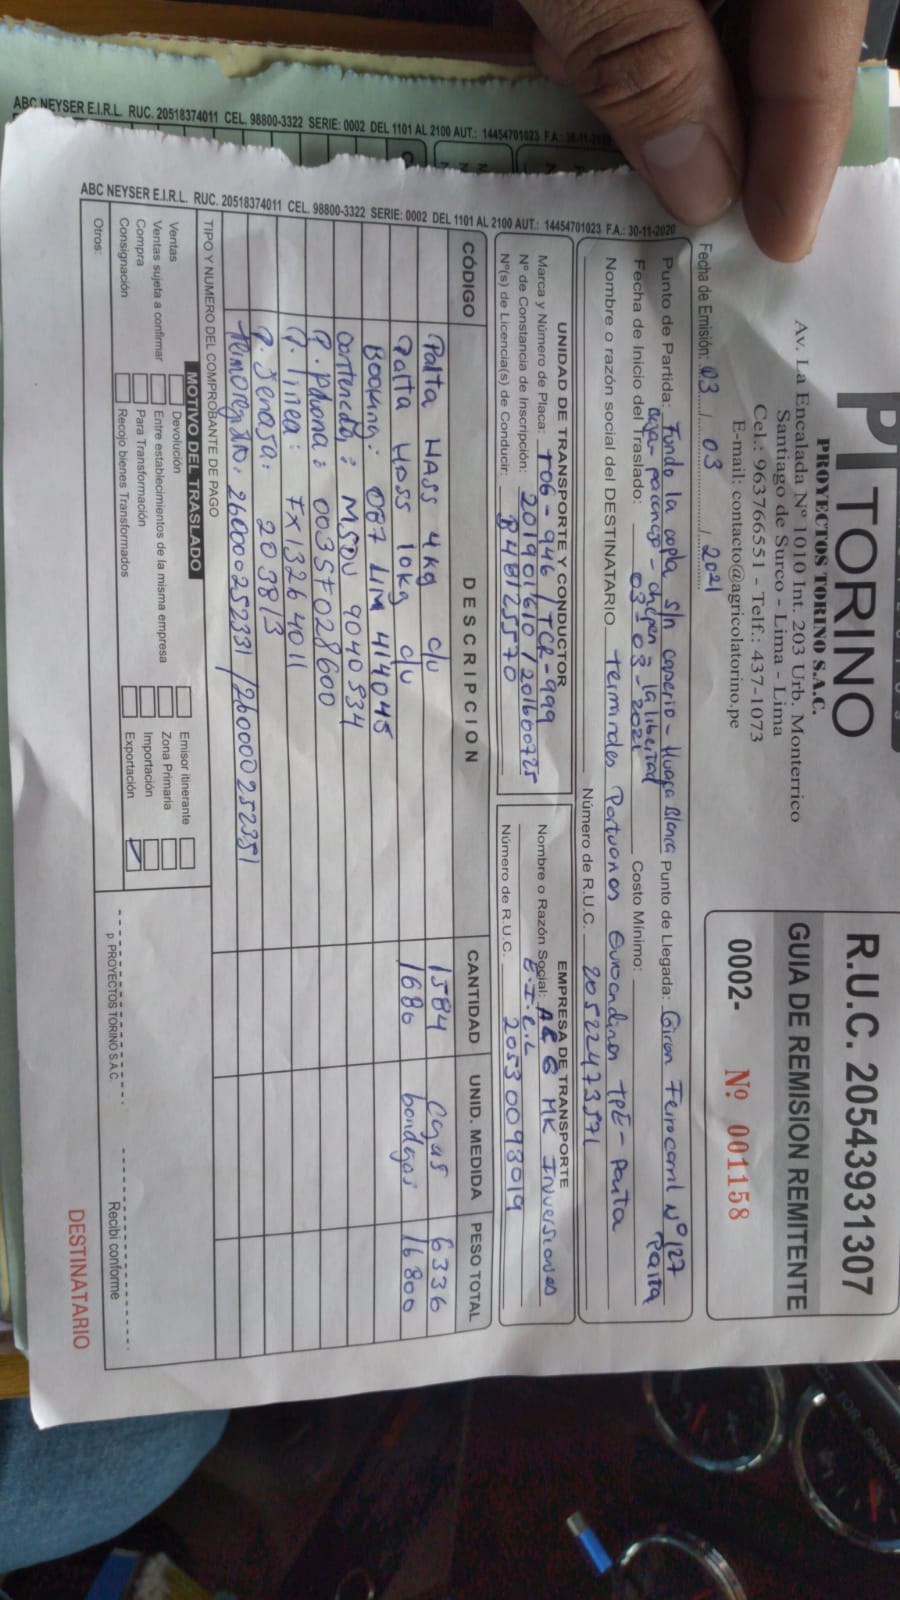 PT TORINO
PROYECTOS TORINO S.A.C.
Av. La Encalada Nº 1010 Int. 203 Urb. Monterrico
Santiago de Surco - Lima - Lima
Cel.: 963766551 - Telf.: 437-1073
E-mail: contacto@agricolatorino.pe
R.U.C. 20543931307
GUIA DE REMISION REMITENTE
0002- Nº 001158
Fecha de Emisión: 03 / 03 / 2021
Punto de Partida: Fundo la copla s/n caserio - Huaca Blanca
- chepen - la libertad
Punto de Llegada: Giron Ferrocarril Nº 127
Paita
Fecha de Inicio del Traslado: 03 - 03 - 2021 Costo Mínimo:
Nombre o razón social del DESTINATARIO Terminales Portuarios Euroandinos TPE - Paita
Número de R.U.C. 20522473571
UNIDAD DE TRANSPORTE Y CONDUCTOR
Marca y Número de Placa: T0G-946 / TCR-999
Nº de Constancia de Inscripción: 20190 1610 / 201600725
Nº(s) de Licencia(s) de Conducir: B46125570
EMPRESA DE TRANSPORTE
Nombre o Razón Social: A & G MK Inversiones
E.I.R.L
Número de R.U.C. 20530093019
CÓDIGO DESCRIPCION CANTIDAD UNID. MEDIDA PESO TOTAL
Palta HASS 4kg c/u 1584 Cajas 6336
Palta Hass 10kg c/u 1680 bandejas 16800
Booking: 087 LIM 414045
Contenedor: MSDU 9040934
P. Aduana: 003SF028600
P. linea: FX1326 4011
P. Senasa: 203813
Termoregistro: 2600025233 / 26000252351
TIPO Y NUMERO DEL COMPROBANTE DE PAGO
MOTIVO DEL TRASLADO
Ventas
Ventas sujeta a confirmar
Compra
Consignación
Otros:
Devolución
Entre establecimientos de la misma empresa
Para Transformación
Recojo bienes Transformados
Emisor itinerante
Zona Primaria
Importación
Exportación
p. PROYECTOS TORINO S.A.C.
Recibí conforme
DESTINATARIO
ABC NEYSER E.I.R.L. RUC. 20518374011 CEL. 98800-3322 SERIE: 0002 DEL 1101 AL 2100 AUT.: 14454701023 F.A.: 30-11-2020
ABC NEYSER E.I.R.L. RUC. 20518374011 CEL. 98800-3322 SERIE: 0002 DEL 1101 AL 2100 AUT.: 14454701023 F.A.: 30-11-20